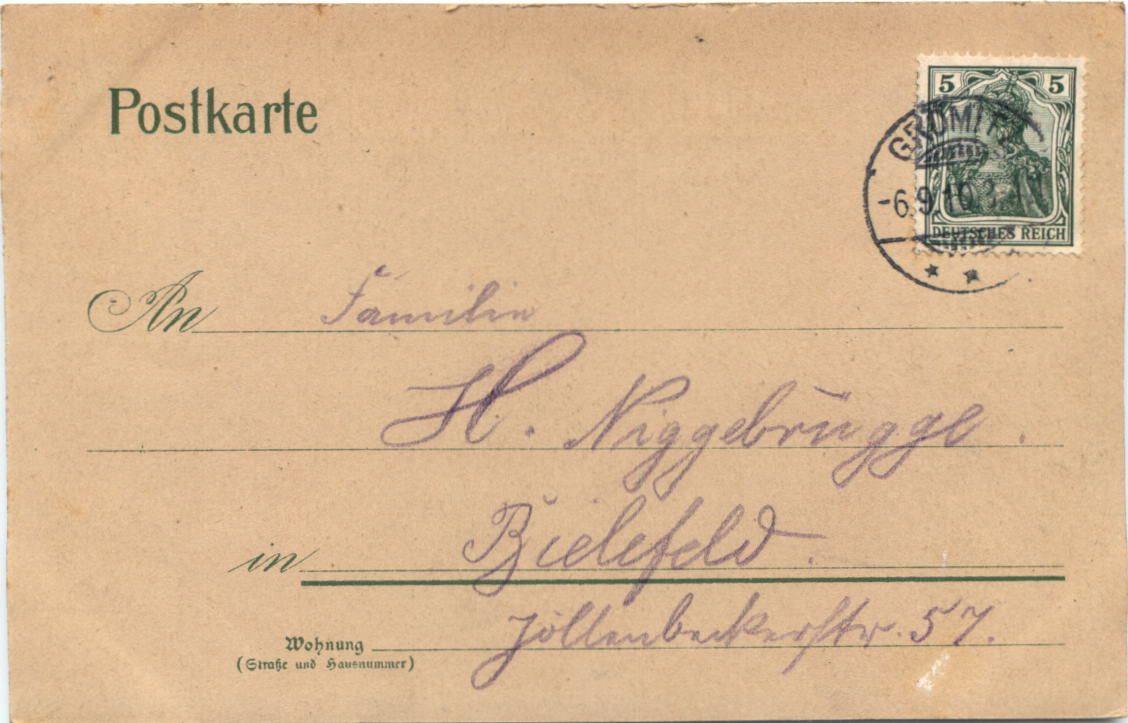 Postkarte
5 5
-6.9.10
DEUTSCHES REICH
An Familie
H. Niggebrügge.
in Bielefeld.
Wohnung Jöllenbeckerstr. 57.
(Straße und Hausnummer)